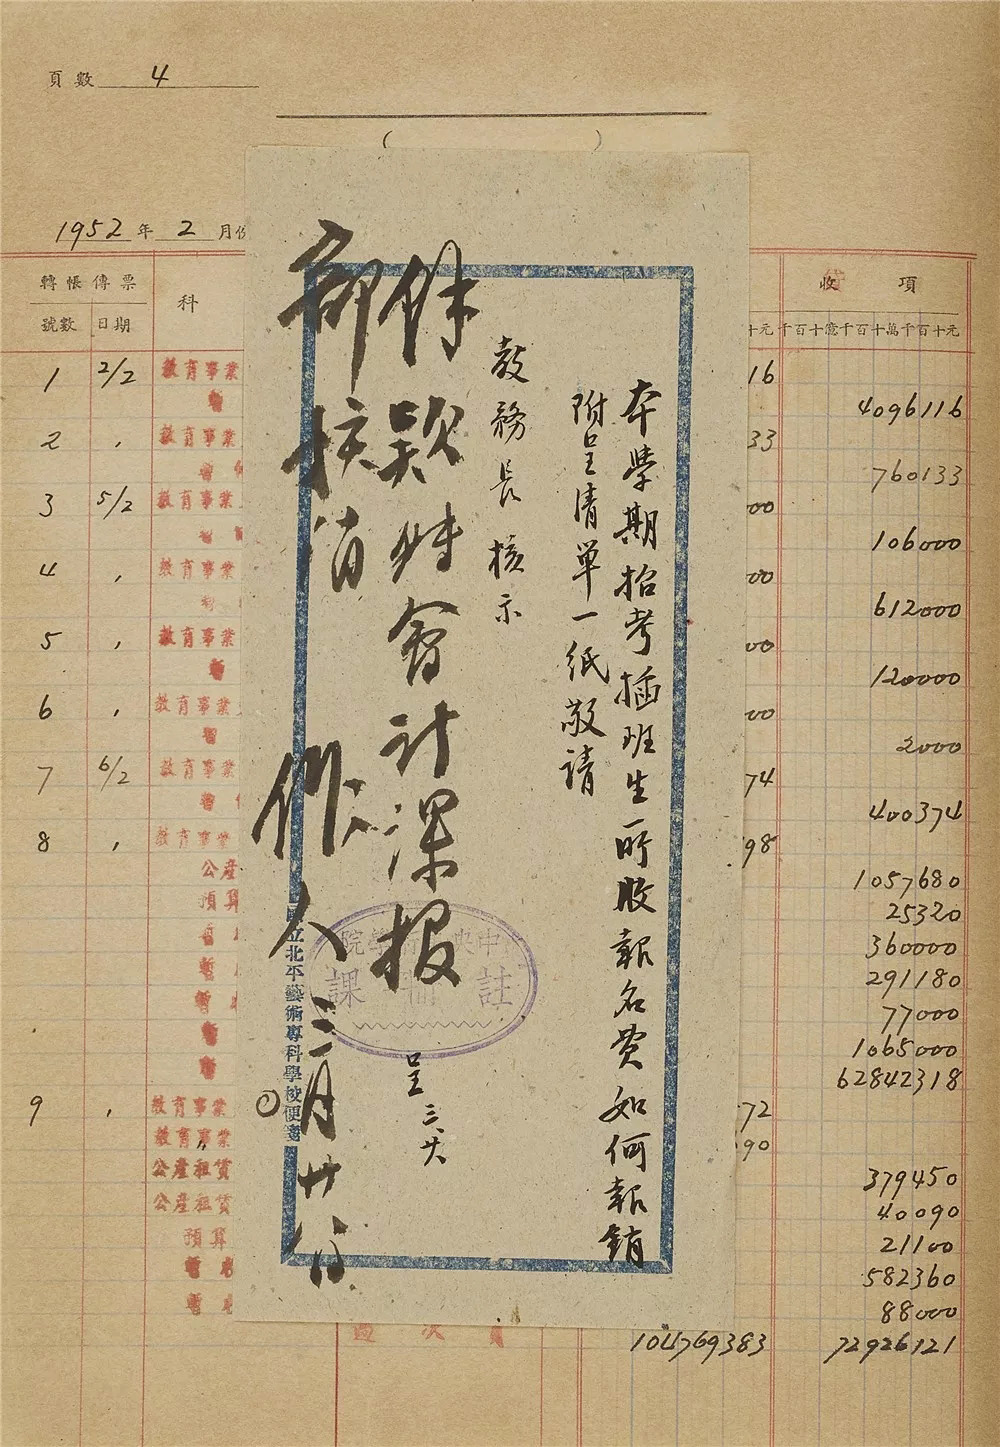 頁數 4
1952 年 2 月份
轉帳傳票
號數 日期
科
收項
十元
千百十億千百十萬千百十元
本學期招考插班生所收報名費如何報銷
附呈清單一紙敬請
教務長核示
呈 三.廿六
餘款財會計課报
部核消
作人 三月廿八日
國立北平藝術專科學校便箋
註冊課
1 2/2 教育事業 16
4096116
2 , 教育事業 33
760133
3 5/2 教育事業 00
106000
4 , 教育事業 00
612000
5 , 教育事業 00
120000
6 , 教育事業 00
2000
7 6/2 教育事業 74
400374
8 , 教育事業 98
公產 1057680
預算 25320
360000
291180
77000
1065000
62842318
9 , 教育事業 72
教育事業 90
公產租賃 379450
公產租賃 40090
預算 21100
582360
88000
過次頁 104769383 72926121